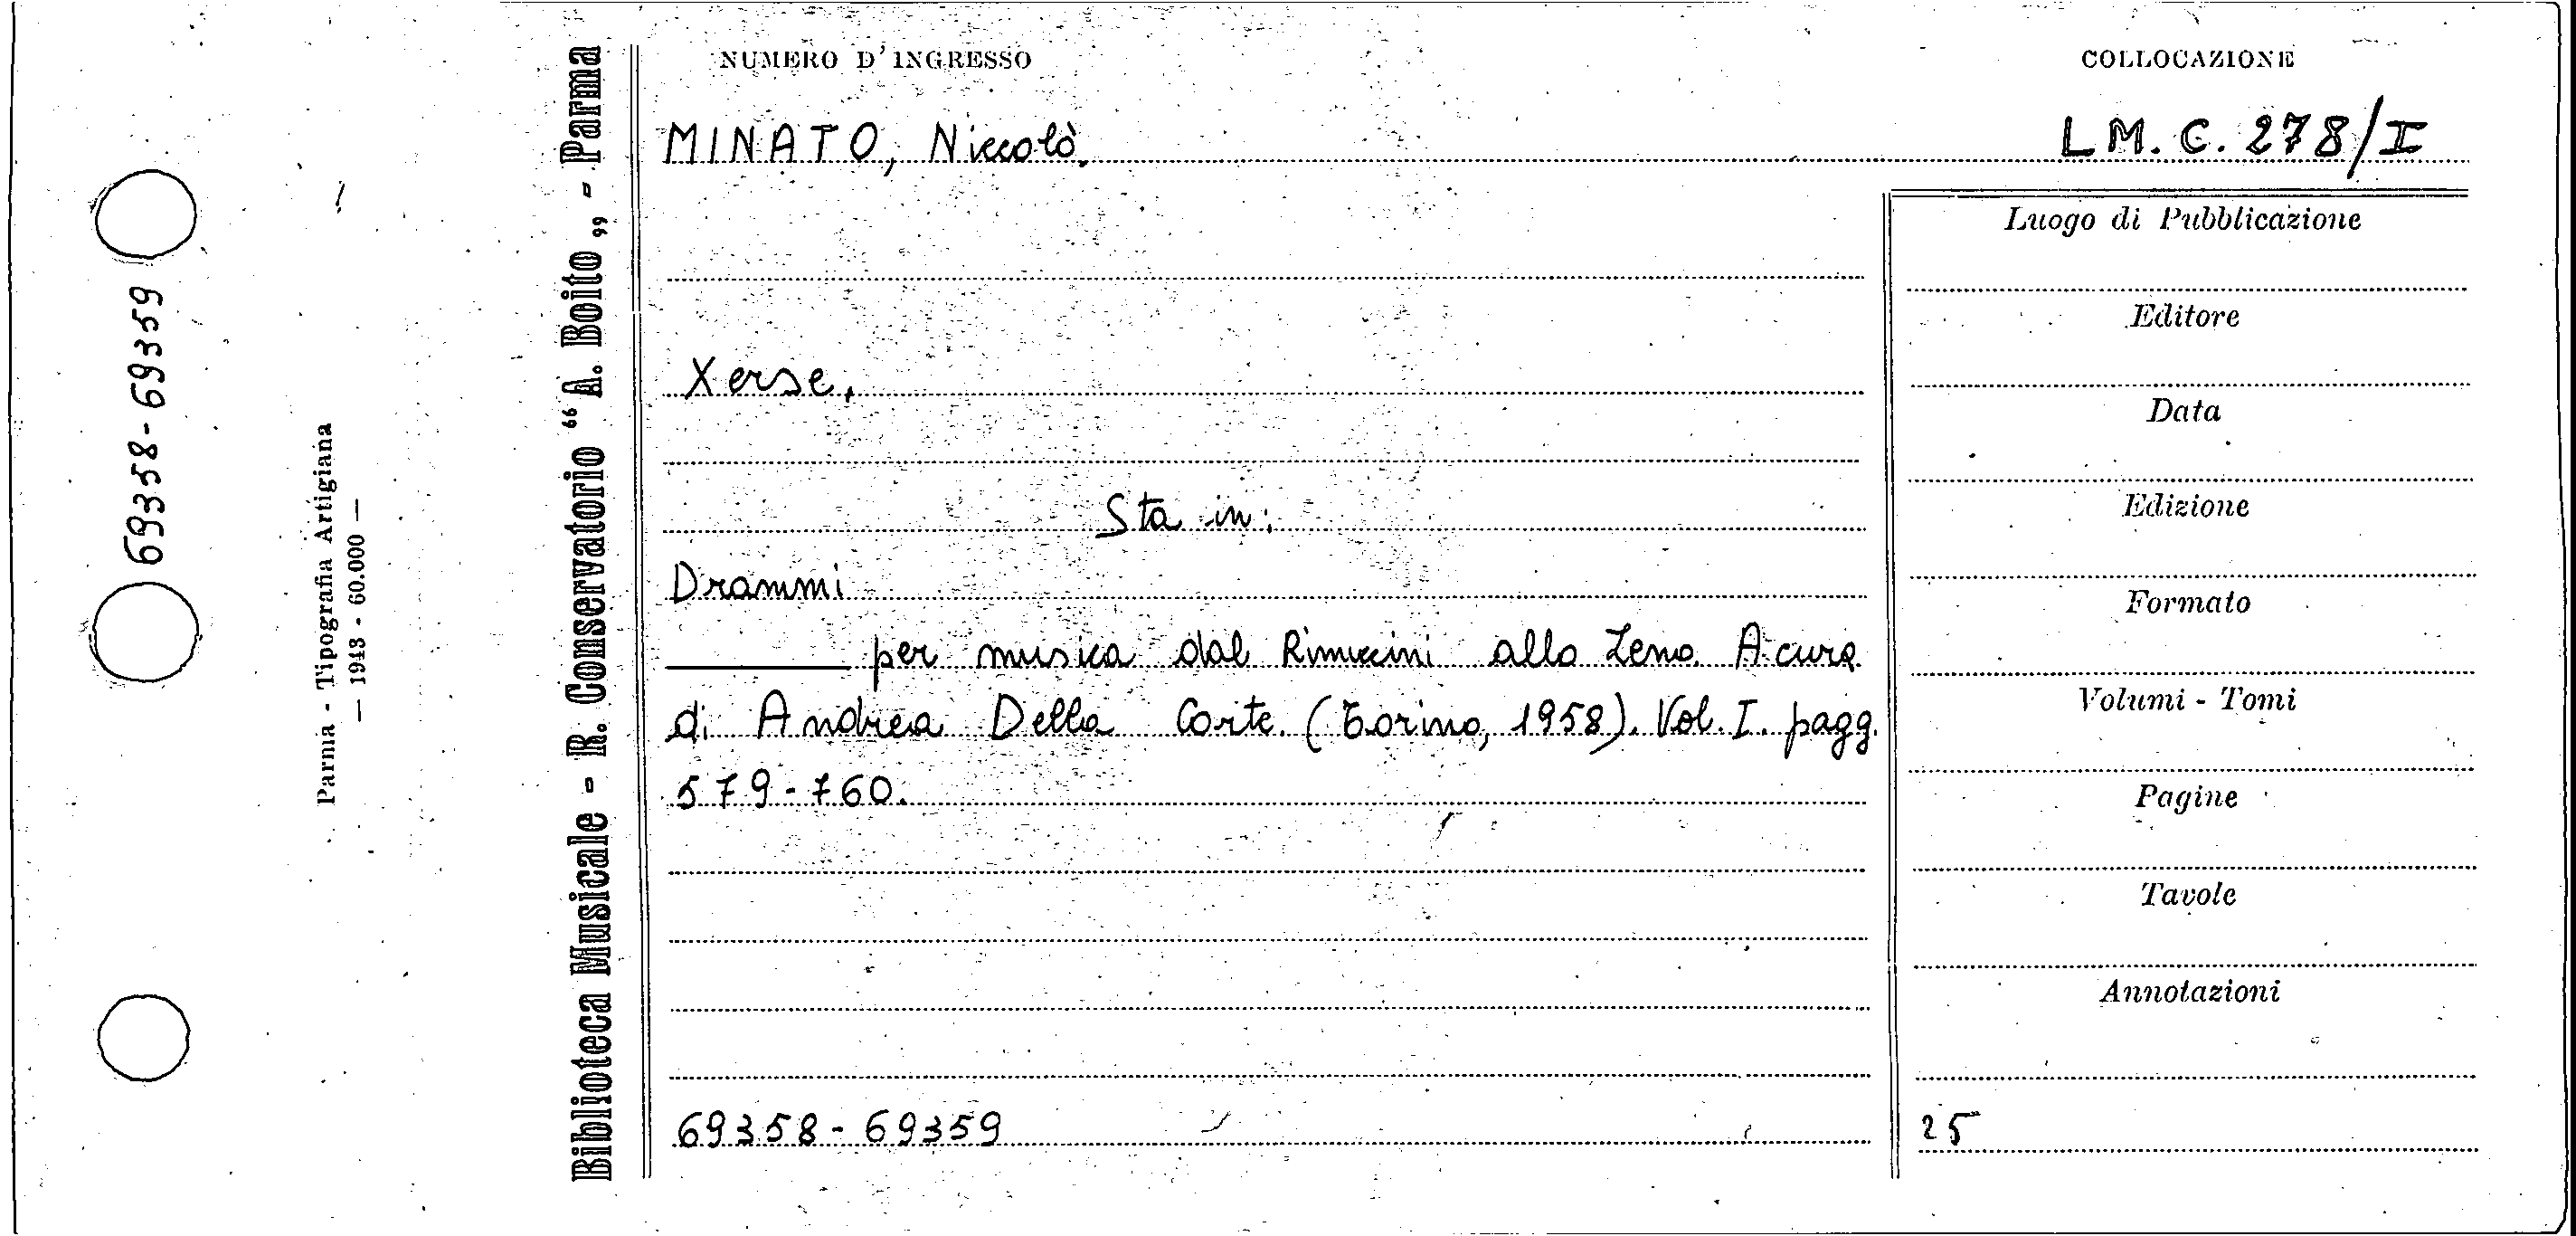 69358-69359
Parma - Tipografia Artigiana
— 1943 - 60.000 —
Biblioteca Musicale - R. Conservatorio “ A. Boito „ - Parma
NUMERO D'INGRESSO
COLLOCAZIONE
MINATO, Niccolò.
L M. C. 278/I
Xerse.
Sta in:
Drammi
per musica dal Rinuccini allo Zeno. A cura
di Andrea Della Corte. (Torino, 1958). Vol. I. pagg.
579-760.
69358-69359
Luogo di Pubblicazione
Editore
Data
Edizione
Formato
Volumi - Tomi
Pagine
Tavole
Annotazioni
25